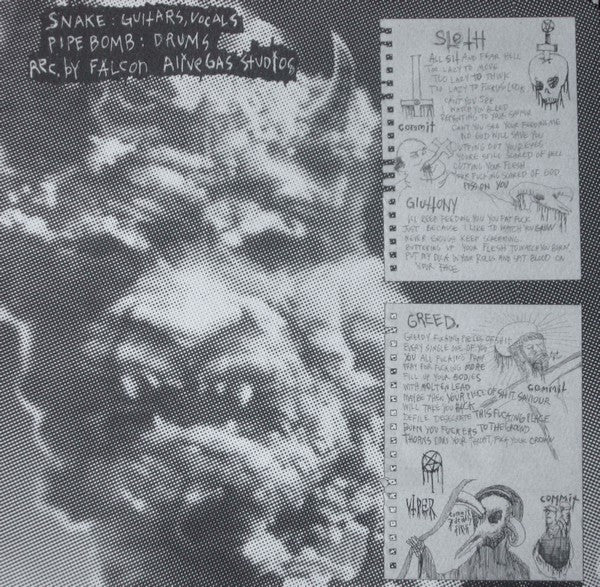 SNAKE: GUITARS, VOCALS
PIPE BOMB: DRUMS
REC. by FALCON AIRVEGAS Studios
SLOTH
ALL SIT AND FEAR HELL
TOO LAZY TO MOVE
TOO LAZY TO THINK
TOO LAZY TO FUCKING
CANT YOU SEE
WATCH YOU BLEED
REPENTING TO YOUR SAVIOUR
commit
CANT YOU SEE YOUR
NO GOD WILL SAVE YOU
CUTTING OUT YOUR EYES
YOURE STILL SCARED OF HELL
CUTTING YOUR FLESH
YOUR FUCKING SCARED OF GOD
PISS ON YOU
GLUTTONY
ILL KEEP FEEDING YOU YOU FAT FUCK
JUST BECAUSE I LIKE TO WATCH YOU
NEVER ENOUGH KEEP SCREAMING
BUTTERING UP YOUR FLESH TO WATCH YOU BURN
PUT MY DICK IN YOUR ROLLS AND SPIT BLOOD ON
YOUR FACE
GREED.
GREEDY FUCKING PIECES OF SHIT
EVERY SINGLE ONE OF YOU
YOU ALL FUCKING PRAY
PRAY FOR FUCKING MORE
FILL UP YOUR BODIES
WITH MOLTEN LEAD
commit
MAYBE THEN YOUR PIECE OF SHIT SAVIOUR
WILL TAKE YOU BACK
DEFILE DESECRATE THIS FUCKING PLACE
BURN YOU FUCKERS TO THE GROUND
THORNS DOWN YOUR THROAT, FUCK YOUR CROWN
VIPER
commit